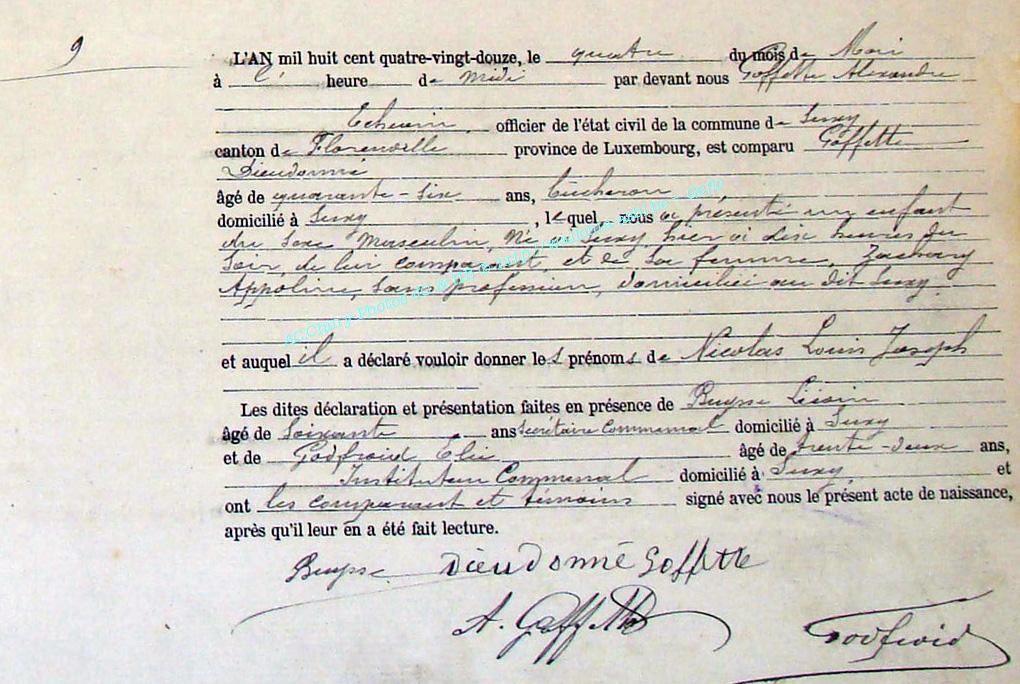 9
L'AN mil huit cent quatre-vingt-douze, le quatre du mois de Mai
à l' heure de midi par devant nous Goffette Alexandre
Echevin, officier de l'état civil de la commune de Suxy
canton de Florenville province de Luxembourg, est comparu Goffette
Dieudonné
âgé de quarante-six ans, bûcheron
domicilié à Suxy, lequel, nous a présenté un enfant
du sexe Masculin, Né à Suxy, hier à dix heures du
Soir, de lui comparant, et de sa femme, Zachary
Appoline, sans profession, domiciliée au dit Suxy.
et auquel il a déclaré vouloir donner les prénoms de Nicolas Louis Joseph
Les dites déclaration et présentation faites en présence de Buysse
âgé de Soixante ans Secrétaire Communal domicilié à Suxy
et de Godfroid Elie âgé de trente-deux ans,
Instituteur Communal domicilié à Suxy et
ont les comparant et témoins signé avec nous le présent acte de naissance,
après qu'il leur en a été fait lecture.
Buysse Dieudonné Goffette
A. Goffette
Godfroid